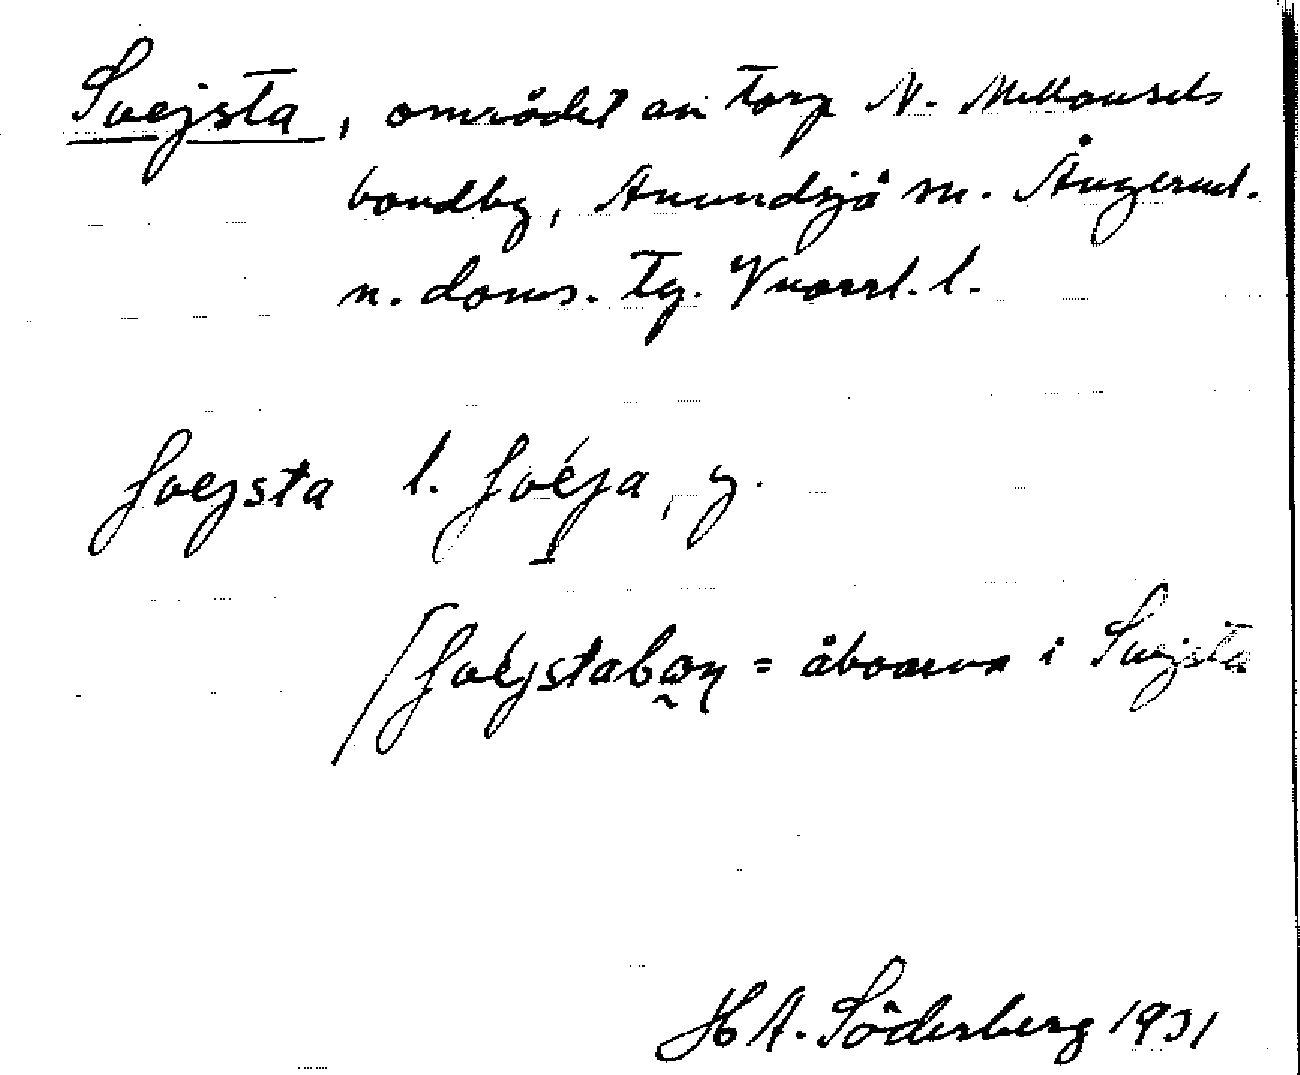 Svejsta, området av torp N. Mellansels
bondby, Anundsjö sn. Ångerml.
n. doms. tg. Vnorrl. l.
svejsta l. svéja, y.
svéjstabon = åboarna i Svejsta
H A. Söderberg 1931